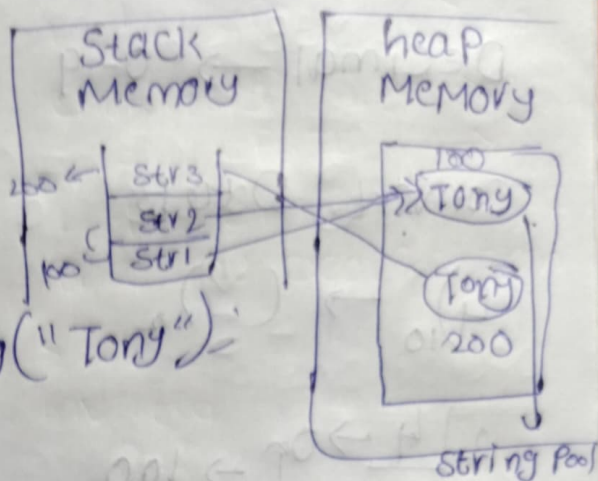 Stack
Memory
heap
MEMORY
200
Str3
Str2
100
Str1
100
Tony
Tony
200
("Tony")
String Pool